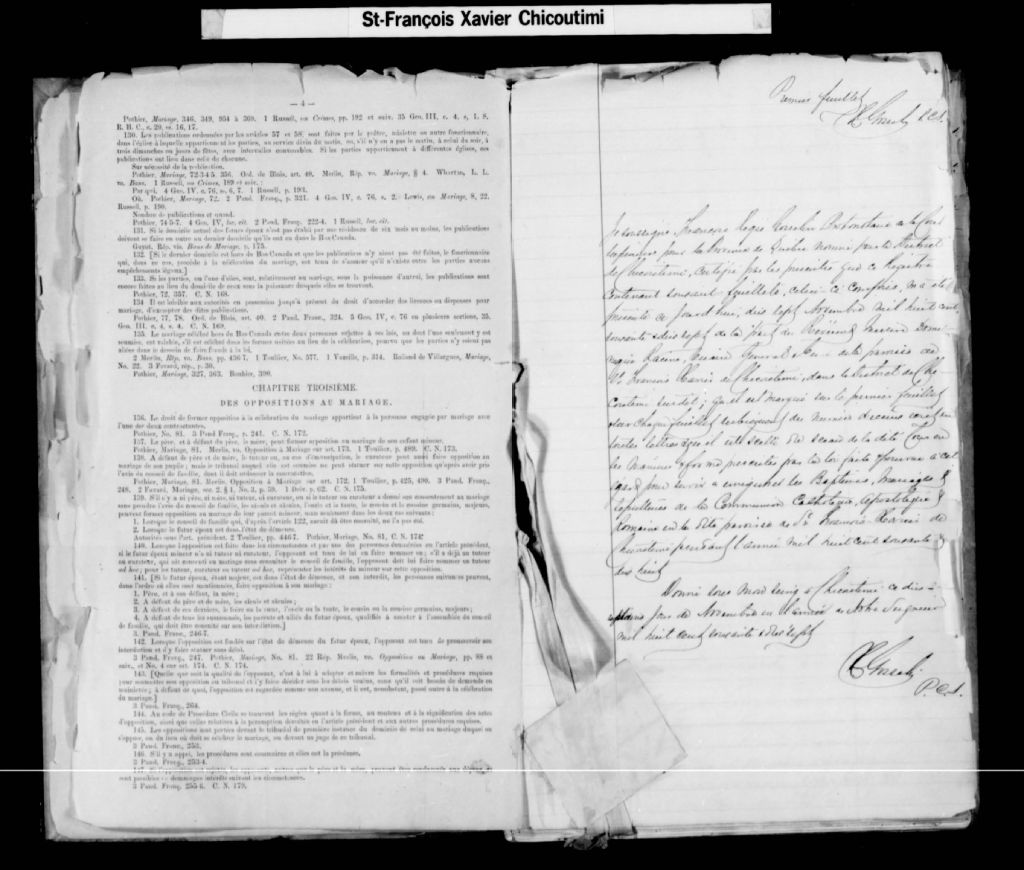 St-François Xavier Chicoutimi
— 4 —
Pothier, Mariage, 346, 349, 364 à 369. 1 Russell, on Crimes, pp. 192 et suiv. 35 Geo. III, c. 4, s. 1. S.
R. B. C., c. 20, ss. 16, 17.
130. Les publications ordonnées par les articles 57 et 58, sont faites par le prêtre, ministre ou autre fonctionnaire,
dans l'église à laquelle appartiennent les parties, au service divin du matin, ou, s'il n'y en a pas le matin, à celui du soir, à
trois dimanches ou jours de fêtes, avec intervalles convenables. Si les parties appartiennent à différentes églises, ces
publications ont lieu dans celle de chacune.
Sur nécessité de la publication.
Pothier, Mariage, 72-3-4-5. 356. Ord. de Blois, art. 40. Merlin, Rép. vo. Mariage, § 4.
vo. Bans. 1 Russell, on Crimes, 189 et suiv. :
Par qui, 4 Geo. IV, c. 76, ss. 6, 7. 1 Russell, p. 193.
Où. Pothier, Mariage, 72. 2 Pand. Franç., p. 321. 4 Geo. IV, c. 76, s. 2. Lewis, on Mariage, 8, 22.
Russell, p. 190.
Nombre de publications et quand.
Pothier, 74-5-7. 4 Geo. IV, loc. cit. 2 Pand. Franç. 222-4. 1 Russell, loc. cit.
131. Si le domicile actuel des futurs époux n'est pas établi par une résidence de six mois au moins, les publications
doivent se faire en outre au dernier domicile qu'ils ont eu dans le Bas-Canada.
Guyot, Rép. vis. Bans de Mariage, p. 175.
132. [Si le dernier domicile est hors du Bas-Canada et que les publications n'y aient pas été faites, le fonctionnaire
qui, dans ce cas, procède à la célébration du mariage, est tenu de s'assurer qu'il n'existe entre les parties aucuns
empêchements légaux.]
133. Si les parties, ou l'une d'elles, sont, relativement au mariage, sous la puissance d'autrui, les publications sont
encore faites au lieu du domicile de ceux sous la puissance desquels elles se trouvent.
Pothier, 72, 357. C. N. 168.
134 Il est loisible aux autorités en possession jusqu'à présent du droit d'accorder des licences ou dispenses pour
mariage, d'exempter des dites publications.
Pothier, 77, 78. Ord. de Blois, art. 40. 2 Pand. Franç., 324. 5 Geo. IV, c. 76 en plusieurs sections, 35.
Geo. III, c. 4, s. 4. C. N. 169.
135. Le mariage célébré hors du Bas-Canada entre deux personnes sujettes à ses lois, ou dont l'une seulement y est
soumise, est valable, s'il est célébré dans les formes usitées au lieu de la célébration, pourvu que les parties n'y soient pas
allées dans le dessein de faire fraude à la loi.
2 Merlin, Rép. vo. Bans, pp. 436-7. 1 Toullier, No. 577. 1 Vazeille, p. 314. Rolland de Villargues, Mariage,
No. 22. 3 Favard, rép., p. 30.
Pothier, Mariage, 327, 363. Bouhier, 390.
CHAPITRE TROISIÈME.
DES OPPOSITIONS AU MARIAGE.
136. Le droit de former opposition à la célébration du mariage appartient à la personne engagée par mariage avec
l'une des deux contractantes.
Pothier, No. 81. 3 Pand Franç., p. 241. C. N. 172.
137. Le père, et à défaut du père, la mère, peut former opposition au mariage de son enfant mineur.
Pothier, Mariage, 81. Merlin, vo. Opposition à Mariage sur art. 173. 1 Toullier, p. 489. C. N. 173.
138. A défaut de père et de mère, le tuteur, ou, en cas d'émancipation, le curateur peut aussi faire opposition au
mariage de son pupille ; mais le tribunal auquel elle est soumise ne peut statuer sur cette opposition qu'après avoir pris
l'avis du conseil de famille, dont il doit ordonner la convocation.
Pothier, Mariage, 81. Merlin, vo. Opposition à Mariage sur art. 172. 1 Toullier, p. 425, 490. 3 Pand. Franç.,
248. 2 Favard, Mariage, sec. 2, § 1, No. 3, p. 59. 1 Delv. p. 62. C. N. 175.
139. S'il n'y a ni père, ni mère, ni tuteur, ni curateur, ou si le tuteur ou curateur a donné son consentement au mariage
sans prendre l'avis du conseil de famille, les aïeuls et aïeules, l'oncle et la tante, le cousin et la cousine germains, majeurs,
peuvent former opposition au mariage de leur parent mineur, mais seulement dans les deux cas suivants :
1. Lorsque le conseil de famille qui, d'après l'article 122, aurait dû être consulté, ne l'a pas été.
2. Lorsque le futur époux est dans l'état de démence.
Autorités sous l'art. précédent. 2 Toullier, pp. 446-7. Pothier, Mariage, No. 81, C. N. 174.
140. Lorsque l'opposition est faite dans les circonstances et par une des personnes énumérées en l'article précédent,
si le futur époux mineur n'a ni tuteur ni curateur, l'opposant est tenu de lui en faire nommer un ; s'il a déjà un tuteur
ou curateur, qui ait consenti au mariage sans consulter le conseil de famille, l'opposant doit lui faire nommer un tuteur
ad hoc ; pour les tuteur, curateur ou tuteur ad hoc, représenter les intérêts du mineur sur cette opposition.
141. [Si le futur époux, étant majeur, est dans l'état de démence, et non interdit, les personnes suivantes peuvent,
dans l'ordre où elles sont mentionnées, faire opposition à son mariage :
1. Père, et à son défaut, la mère ;
2. A défaut de père et de mère, les aïeuls et aïeules ;
3. A défaut de ces derniers, le frère ou la sœur, l'oncle ou la tante, le cousin ou la cousine germains, majeurs ;
4. A défaut de tous les susnommés, les parents et alliés du futur époux, qualifiés à assister à l'assemblée du conseil
de famille, qui doit être consulté sur son interdiction.]
3. Pand. Franç., 246-7.
142. Lorsque l'opposition est fondée sur l'état de démence du futur époux, l'opposant est tenu de promouvoir son
interdiction et d'y faire statuer sans délai.
3 Pand. Franç., 247. Pothier, Mariage, No. 81. 22 Rép. Merlin, vo. Opposition au Mariage, pp. 88 et
suiv., et No. 4 sur art. 174. C. N. 174.
143. [Quelle que soit la qualité de l'opposant, c'est à lui à adopter et suivre les formalités et procédures requises
pour soumettre son opposition au tribunal et l'y faire décider sous les délais voulus, sans qu'il soit besoin de demande en
mainlevée ; à défaut de quoi, l'opposition est regardée comme non avenue, et il est, nonobstant, passé outre à la célébration
du mariage.]
3 Pand. Franç., 264.
144. Au code de Procédure Civile se trouvent les règles quant à la forme, au contenu et à la signification des actes
d'opposition, ainsi que celles relatives à la péremption décrétée en l'article précédent et aux autres procédures requises.
145. Les oppositions sont portées devant le tribunal de première instance du domicile de celui au mariage duquel on
s'oppose, ou du lieu où doit se célébrer le mariage, ou devant un juge de ce tribunal.
3 Pand. Franç., 253.
146. S'il y a appel, les procédures sont sommaires et elles ont la préséance.
3 Pand. Franç., 253-4.
147. Si l'opposition est rejetée, les opposants, autres que le père et la mère, peuvent être condamnés aux dépens et
sont passibles de dommages-intérêts suivant les circonstances.
3 Pand. Franç. 255-6. C. N. 179.
Premier feuillet
P.C.S.
Je soussigné, François Protonotaire de la Cour
Supérieure pour la Province de Québec nommé pour le District
de Chicoutimi, certifie par les présentes que ce Registre
contenant soixante feuillets, celui-ci compris, m'a été
présenté ce jourd'hui, dix sept Novembre mil huit cent
soixante & dix sept de la part du Révérend Messire Domi-
nique Racine, Vicaire Général & Curé de la paroisse de
St. François Xavier de Chicoutimi, dans le District de Chi-
coutimi susdit ; qu'il est marqué sur le premier feuillet
& sur chaque feuillet subséquent du numéro d'icelui écrit en
toutes lettres & qu'il est scellé du sceau de la dite Cour en
la manière & forme prescrites par la loi faite & pourvue à cet
égard pour servir à enregistrer les Baptêmes, Mariages &
Sépultures de la Communion Catholique, Apostolique &
Romaine en la dite paroisse de St. François Xavier de
Chicoutimi pendant l'année mil huit cent soixante &
dix huit
Donné sous mon seing à Chicoutimi ce dix-
septième jour de Novembre en l'année de Notre Seigneur
mil huit cent soixante & dix sept
P.C.S.